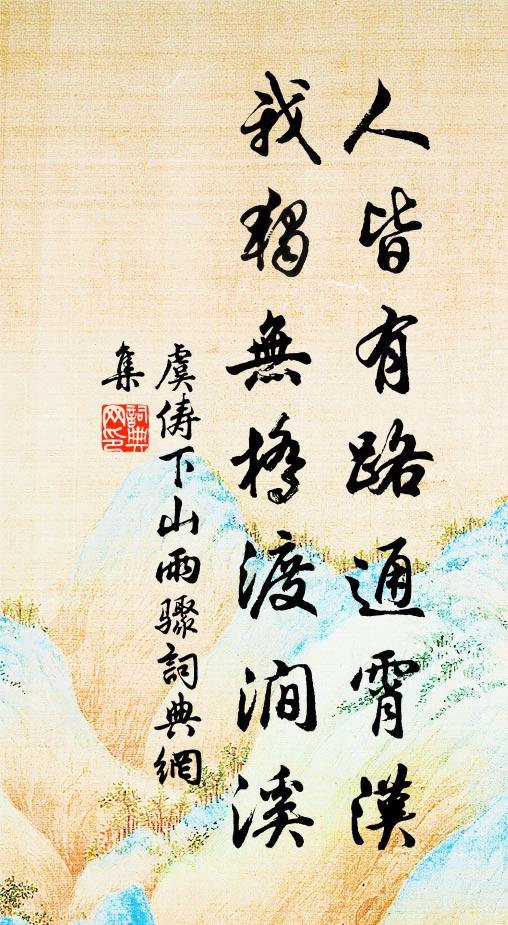 人皆有路通霄漢
我獨無橋渡澗溪
虞儔下山雨驟詞典網
集
詞典網印